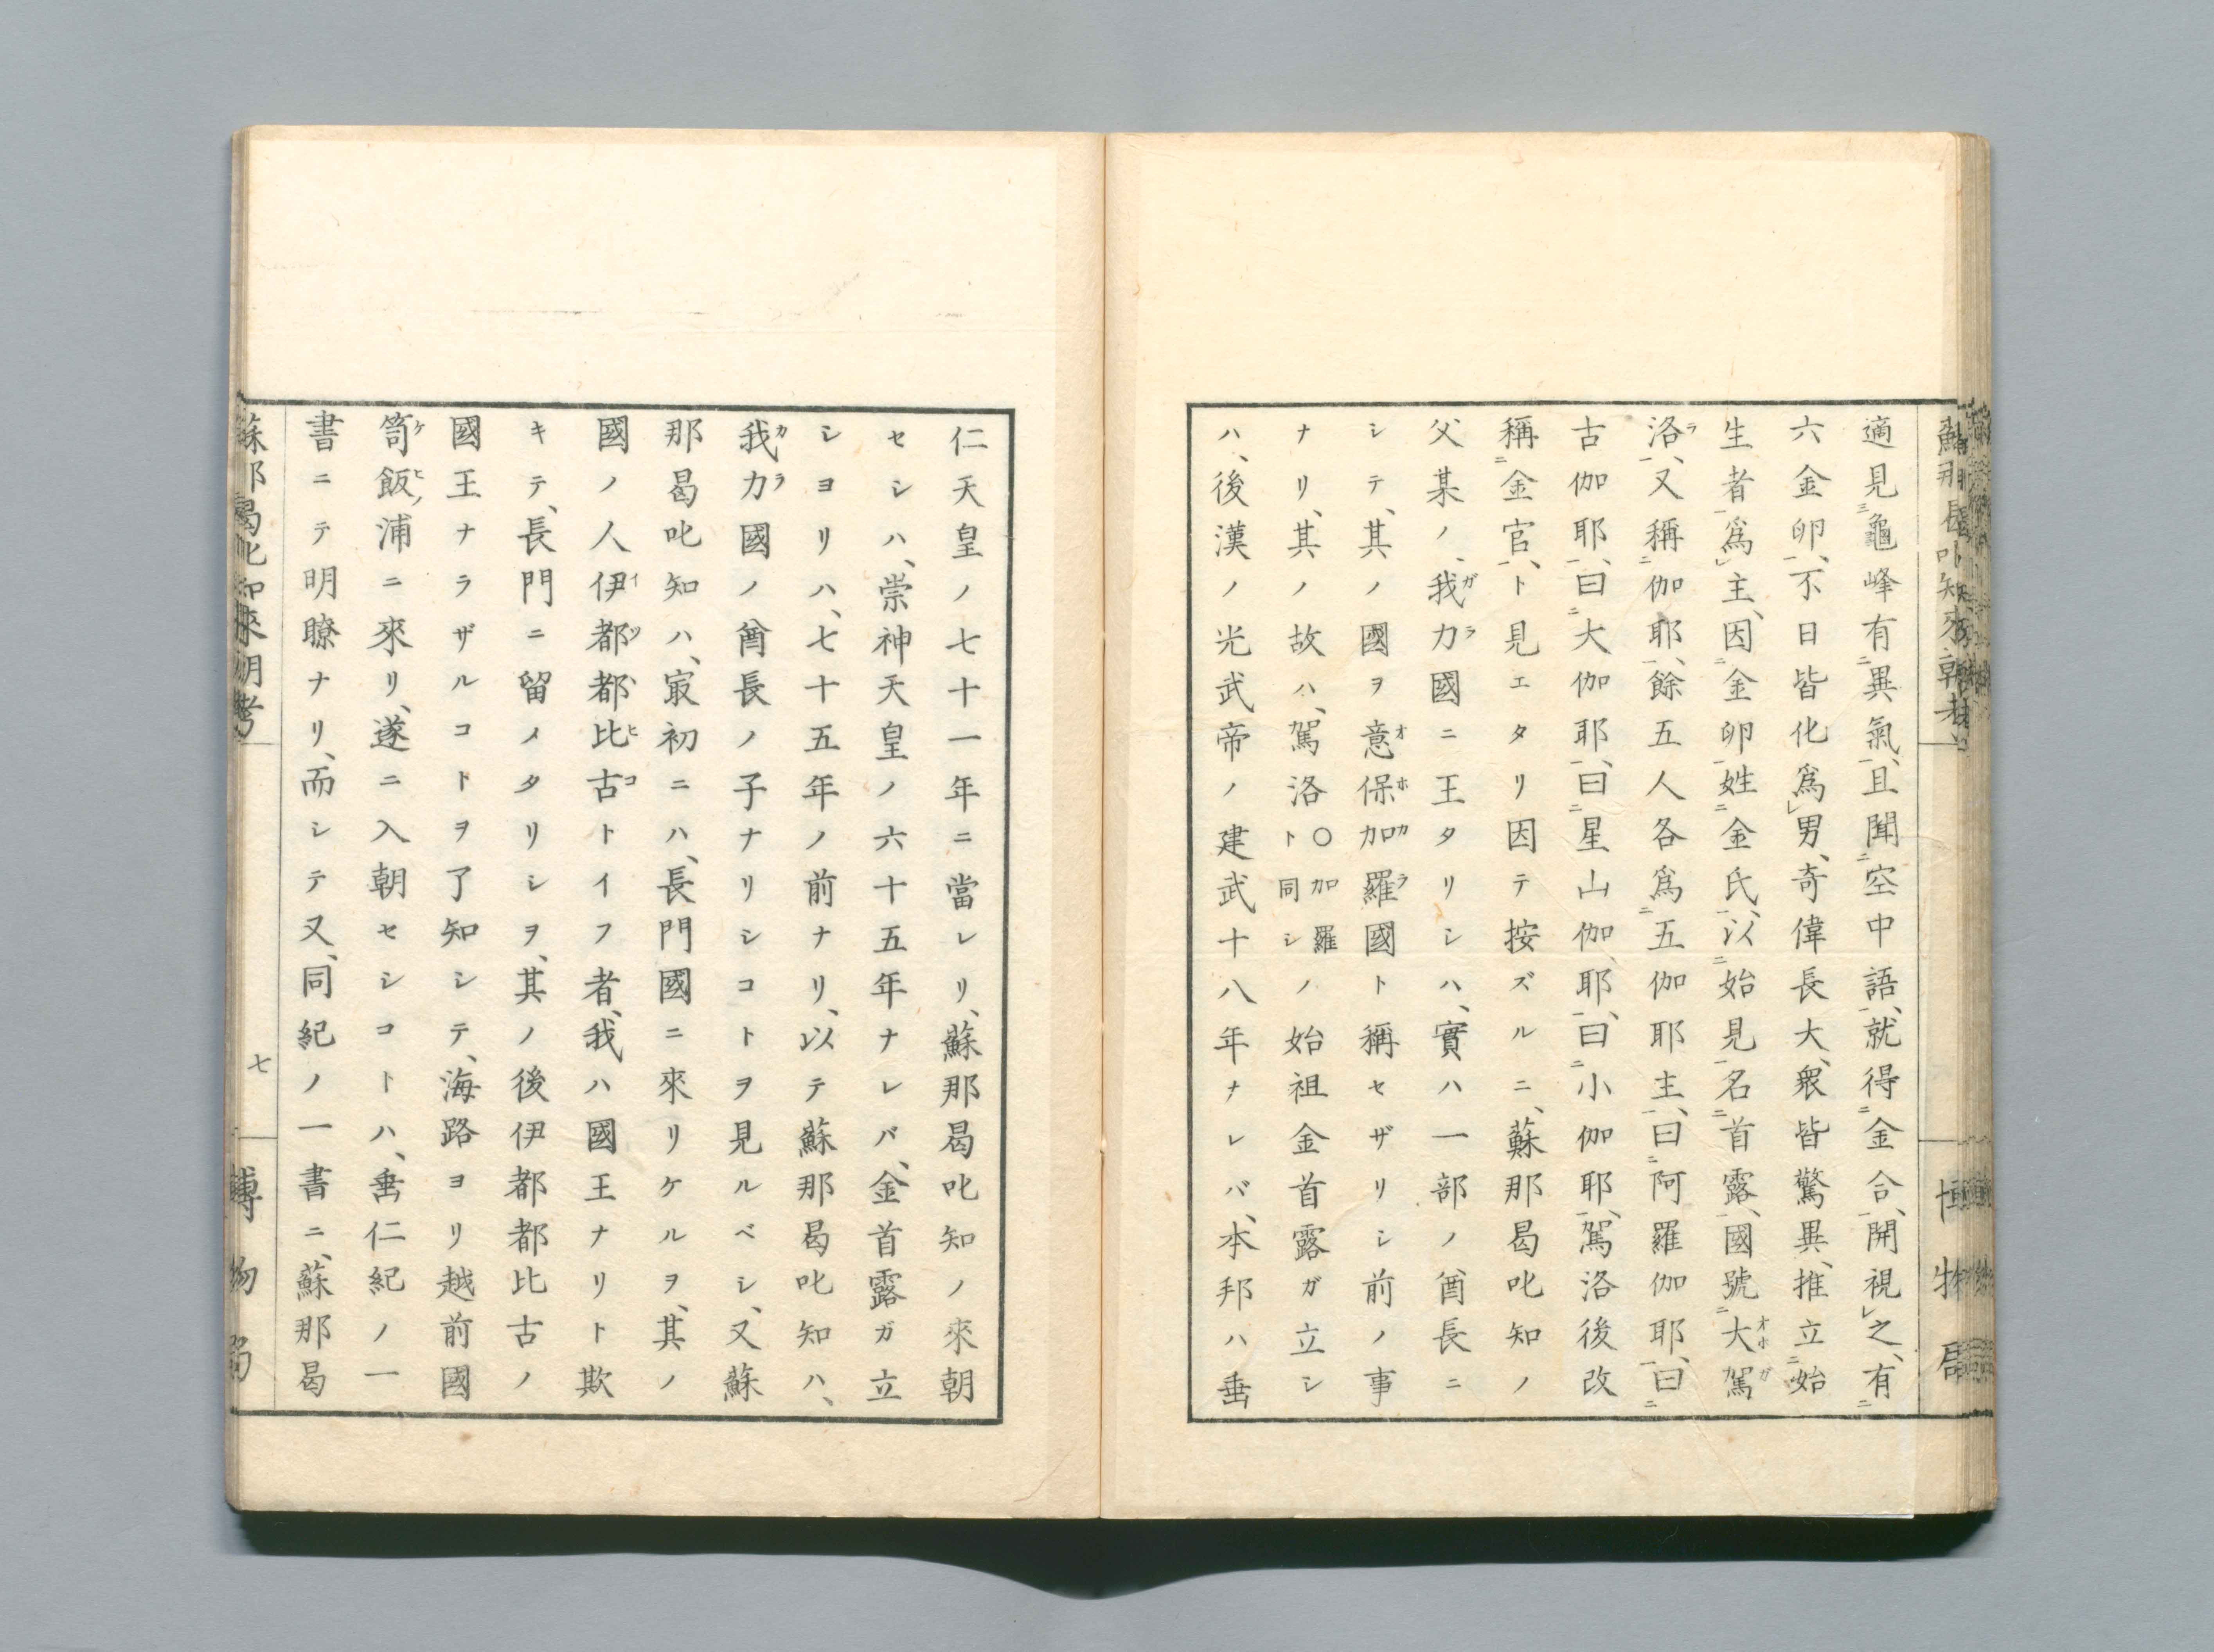 適見龜峰有異氣、且聞空中語、就得金合、開視之、有
六金卵、不日皆化爲男、奇偉長大、衆皆驚異、推立始
生者爲主、因金卵姓金氏、以始見名首露、國號大駕
洛、又稱伽耶、餘五人各爲五伽耶主、曰阿羅伽耶、曰
古伽耶、曰大伽耶、曰星山伽耶、曰小伽耶、駕洛後改
稱金官、ト見エタリ因テ按ズルニ、蘇那曷叱知ノ
父某ノ、我カ國ニ王タリシハ、實ハ一部ノ酋長ニ
シテ、其ノ國ヲ意保加羅國ト稱セザリシ前ノ事
ナリ、其ノ故ハ、駕洛〇加羅ト同シノ始祖金首露ガ立シ
ハ、後漢ノ光武帝ノ建武十八年ナレバ、本邦ハ垂
仁天皇ノ七十一年ニ當レリ、蘇那曷叱知ノ來朝
セシハ、崇神天皇ノ六十五年ナレバ、金首露ガ立
シヨリハ、七十五年ノ前ナリ、以テ蘇那曷叱知ハ、
我カ國ノ酋長ノ子ナリシコトヲ見ルベシ、又蘇
那曷叱知ハ、㝡初ニハ、長門國ニ來リケルヲ、其ノ
國ノ人伊都都比古トイフ者、我ハ國王ナリト欺
キテ、長門ニ留ノタリシヲ、其ノ後伊都都比古ノ
國王ナラザルコトヲ了知シテ、海路ヨリ越前國
笥飯浦ニ來リ、遂ニ入朝セシコトハ、垂仁紀ノ一
書ニテ明瞭ナリ、而シテ又、同紀ノ一書ニ、蘇那曷
蘇那曷叱知來朝考
七
博物局